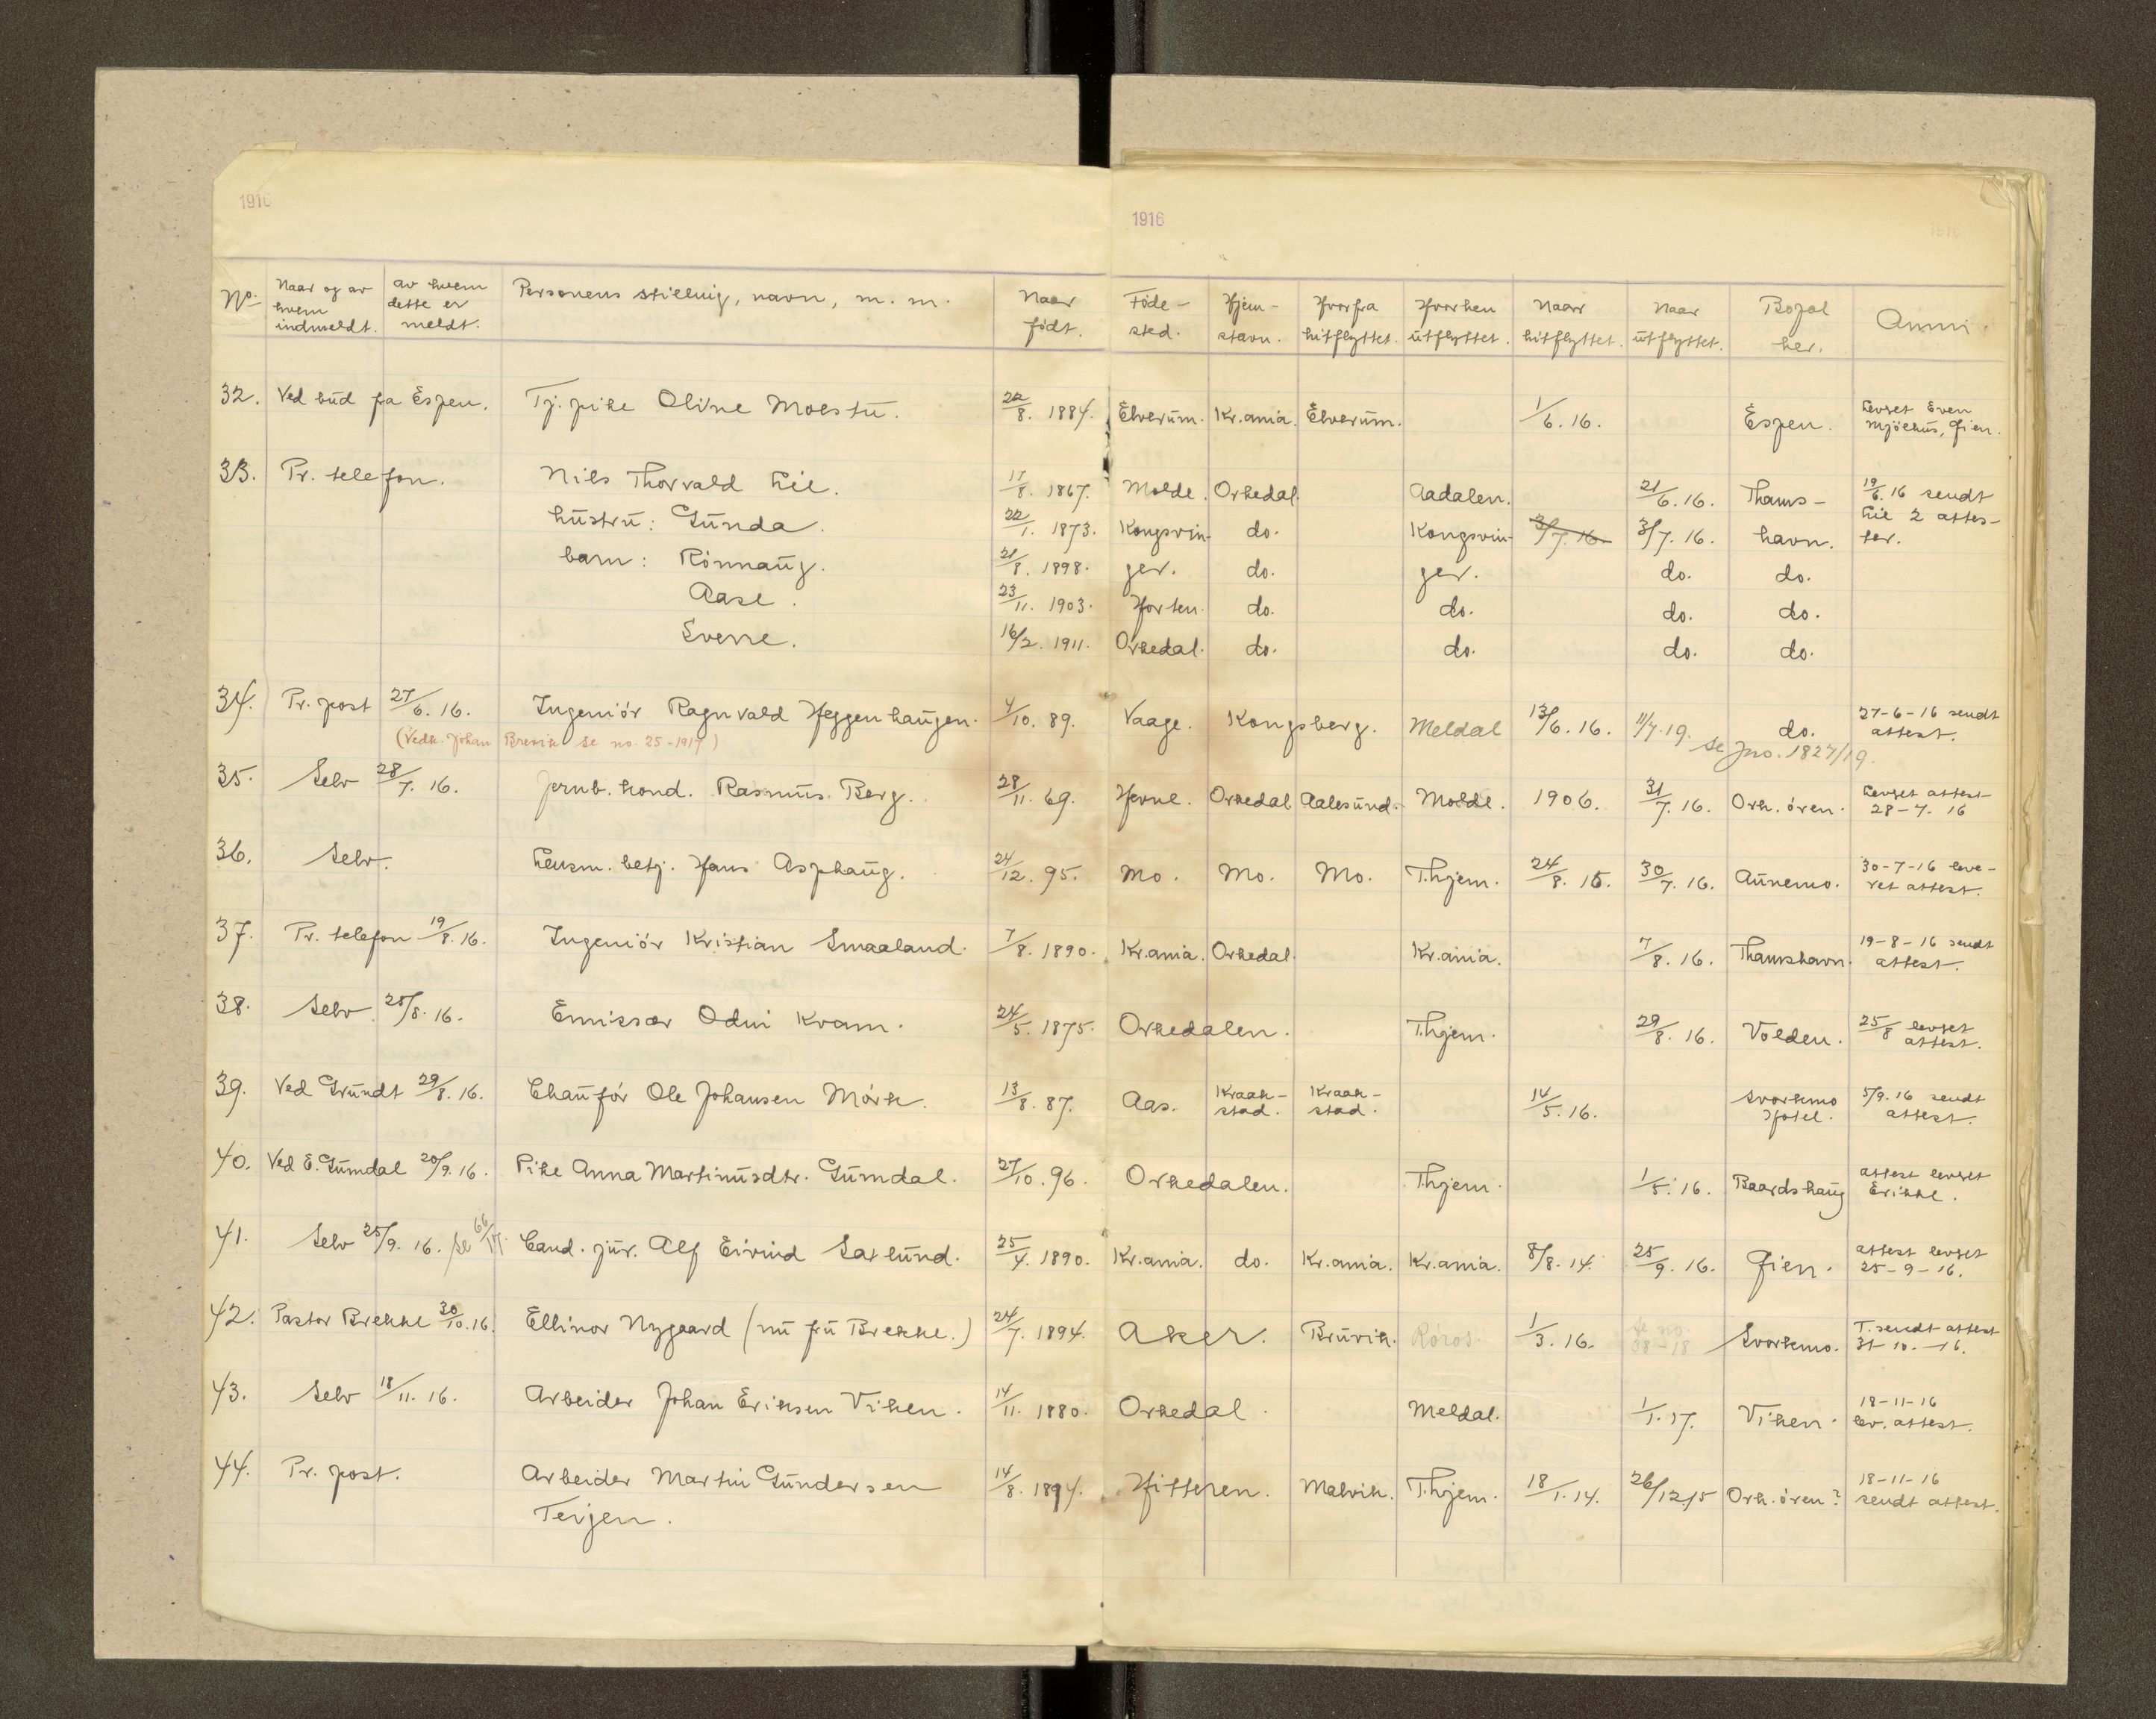 1916
1916
No. Naar og av hvem indmeldt. av hvem dette er meldt. Personens stilling, navn, m. m. Naar født. Føde-sted. Hjem-stavn. Hvorfra hitflyttet. Hvorhen utflyttet. Naar hitflyttet. Naar utflyttet. Bopæl her. Anm.
32. Ved bud fra Espen. Tj. pike Oline Moestu. 22/8. 1884. Elverum. Kr.ania. Elverum. 1/6. 16. Espen. Levert Even Mjøehus, Gjen.
33. Pr. telefon. Nils Thorvald Lie. 17/8. 1867. Molde. Orkedal. Aadalen. 21/6. 16. Thams- 19/6. 16 sendt
hustru: Gunda. 22/1. 1873. Kongsvin- do. Kongsvin- 3/7. 16. 3/7. 16. havn. Lie 2 attes-ter.
barn: Rønnaug. 21/8. 1898. ger. do. ger. do. do.
Aase. 23/11. 1903. Horten. do. do. do. do.
Sverre. 16/2. 1911. Orkedal. do. do. do. do.
34. Pr. post 27/6. 16. Ingeniør Ragnvald Heggenhaugen. 4/10. 89. Vaage. Kongsberg. Meldal 13/6. 16. 11/7. 19. do. 27-6-16 sendt attest.
(Vedk. Johan Brevik se no. 25-1917) se jno. 1827/19.
35. Selv 28/7. 16. Jernb. kond. Rasmus Berg. 28/11. 69. Hevne. Orkedal Aalesund. Molde. 1906. 31/7. 16. Ork. øren. Levert attest 28-7. 16
36. Selv. Lensm. betj. Hans Asphaug. 24/12. 95. Mo. Mo. Mo. Thjem. 24/8. 15. 30/7. 16. Aunemo. 30-7-16 leve-ret attest.
37. Pr. telefon 19/8. 16. Ingeniør Kristian Smaaland. 7/8. 1890. Kr.ania. Orkedal. Kr.ania. 7/8. 16. Thamshavn. 19-8-16 sendt attest.
38. Selv 25/8. 16. Emissær Odin Kvam. 24/5. 1875. Orkedalen. Thjem. 29/8. 16. Volden. 25/8 levert attest.
39. Ved Grundt 29/8. 16. Chauför Ole Johansen Mørk. 13/8. 87. Aas. Kraak-stad. Kraak-stad. 14/5. 16. Svorkmo Hotel. 5/9. 16 sendt attest.
40. Ved E. Gumdal 20/9. 16. Pike Anna Martinusdtr. Gumdal. 27/10. 96. Orkedalen. Thjem. 1/5. 16. Baardshaug attest levert Erikke.
41. Selv 25/9. 16. se 66/17. Cand. jur. Alf Eivind Saxlund. 25/4. 1890. Kr.ania. do. Kr.ania. Kr.ania. 8/8. 14. 25/9. 16. Gjen. attest levert 25-9-16.
42. Pastor Brekke 30/10. 16. Ellinor Nygaard (nu fru Brekke.) 24/7. 1894. Aker. Bruvik. Røros. 1/3. 16. se no. 38-18 Svorkmo. T. sendt attest 31-10.-16.
43. Selv 18/11. 16. Arbeider Johan Eriksen Viken. 14/11. 1880. Orkedal. Meldal. 1/1. 17. Viken. 18-11-16 lev. attest.
44. Pr. post. Arbeider Martin Gundersen 14/8. 1894. Hitteren. Malvik. Thjem. 18/1. 14. 26/12 15 Ork. øren? 18-11-16 sendt attest.
Terjen.